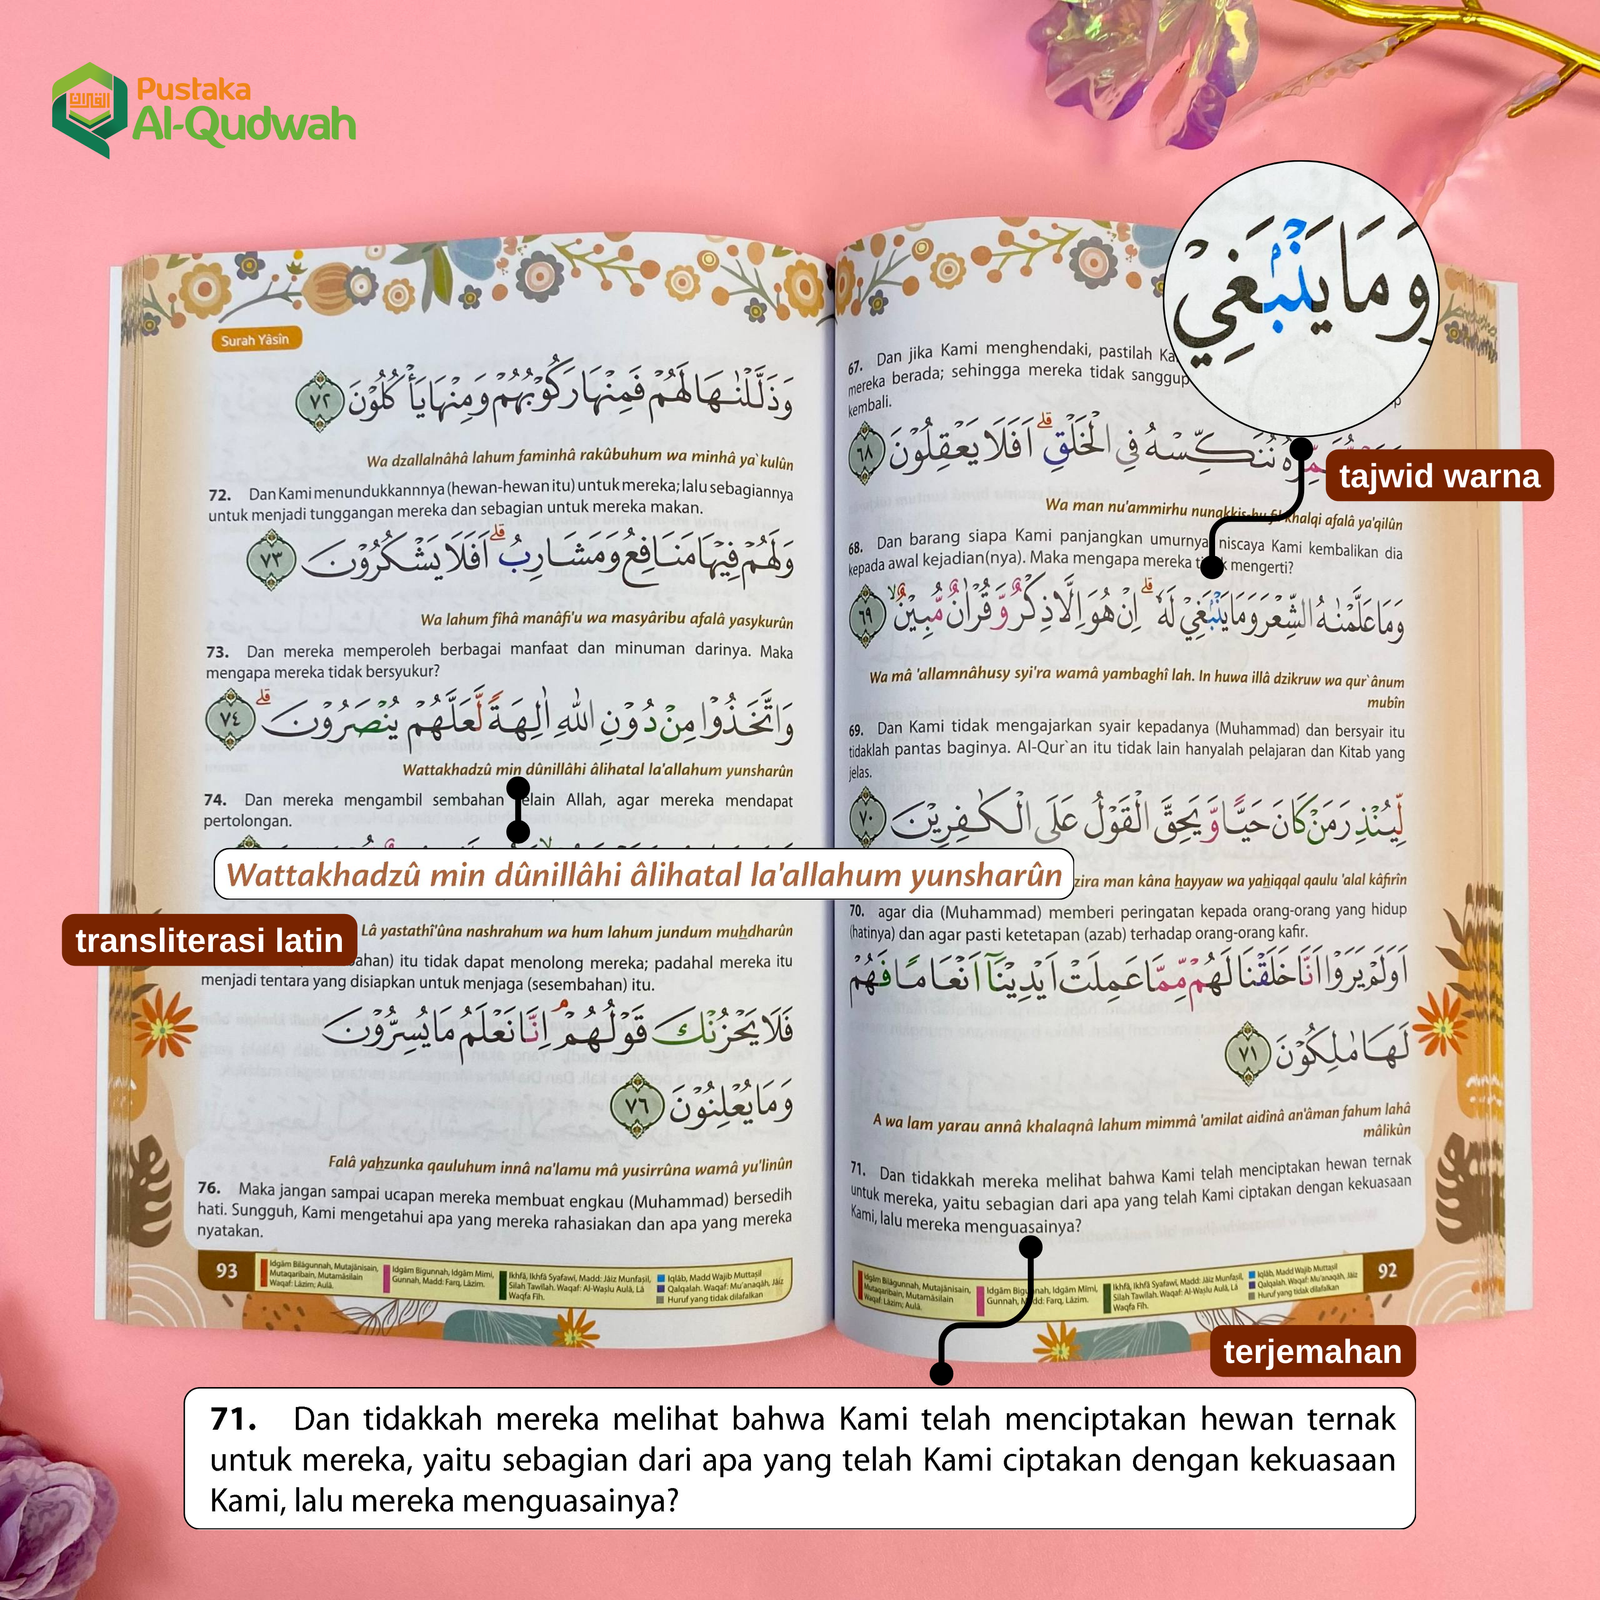 القرآن
Pustaka
Al-Qudwah
وَمَا يَنْۢبَغِيْ
tajwid warna
67. Dan jika Kami menghendaki, pastilah
mereka berada; sehingga mereka tidak sanggup
kembali.
نُنَكِّسْهُ فِى الْخَلْقِۗ اَفَلَا يَعْقِلُوْنَ ٦٨
Wa man nu'ammirhu nunakkis-hu fil khalqi afalâ ya'qilûn
68. Dan barang siapa Kami panjangkan umurnya niscaya Kami kembalikan dia
kepada awal kejadian(nya). Maka mengapa mereka tidak mengerti?
وَمَا عَلَّمْنٰهُ الشِّعْرَ وَمَا يَنْۢبَغِيْ لَهٗۗ اِنْ هُوَ اِلَّا ذِكْرٌ وَّقُرْاٰنٌ مُّبِيْنٌۙ ٦٩
Wa mâ 'allamnâhusy syi'ra wamâ yambaghî lah. In huwa illâ dzikruw wa qur`ânum
mubîn
69. Dan Kami tidak mengajarkan syair kepadanya (Muhammad) dan bersyair itu
tidaklah pantas baginya. Al-Qur`an itu tidak lain hanyalah pelajaran dan Kitab yang
jelas.
لِّيُنْذِرَ مَنْ كَانَ حَيًّا وَّيَحِقَّ الْقَوْلُ عَلَى الْكٰفِرِيْنَ ٧٠
zira man kâna hayyaw wa yahiqqal qaulu 'alal kâfirîn
70. agar dia (Muhammad) memberi peringatan kepada orang-orang yang hidup
(hatinya) dan agar pasti ketetapan (azab) terhadap orang-orang kafir.
اَوَلَمْ يَرَوْا اَنَّا خَلَقْنَا لَهُمْ مِّمَّا عَمِلَتْ اَيْدِيْنَآ اَنْعَامًا فَهُمْ
لَهَا مٰلِكُوْنَ ٧١
A wa lam yarau annâ khalaqnâ lahum mimmâ 'amilat aidînâ an'âman fahum lahâ
mâlikûn
71. Dan tidakkah mereka melihat bahwa Kami telah menciptakan hewan ternak
untuk mereka, yaitu sebagian dari apa yang telah Kami ciptakan dengan kekuasaan
Kami, lalu mereka menguasainya?
Idgâm Bilâgunnah, Mutajânisain,
Mutaqaribain, Mutamâsilain
Waqaf: Lâzim; Aulâ.
Idgâm Bigunnah, Idgâm Mimi,
Gunnah, Madd: Farq, Lâzim.
Ikhfâ, Ikhfâ Syafawi, Madd: Jâiz Munfaşil,
Silah Tawîlah. Waqaf: Al-Waşlu Aulâ, Lâ
Waqfa Fih.
Iqlâb, Madd Wajib Muttaşil
Qalqalah. Waqaf: Mu'anaqâh, Jâiz
Huruf yang tidak dilafalkan
92
Surah Yâsîn
وَذَلَّلْنٰهَا لَهُمْ فَمِنْهَا رَكُوْبُهُمْ وَمِنْهَا يَأْكُلُوْنَ ٧٢
Wa dzallalnâhâ lahum faminhâ rakûbuhum wa minhâ ya`kulûn
72. Dan Kami menundukkannnya (hewan-hewan itu) untuk mereka; lalu sebagiannya
untuk menjadi tunggangan mereka dan sebagian untuk mereka makan.
وَلَهُمْ فِيْهَا مَنَافِعُ وَمَشَارِبُۗ اَفَلَا يَشْكُرُوْنَ ٧٣
Wa lahum fîhâ manâfi'u wa masyâribu afalâ yasykurûn
73. Dan mereka memperoleh berbagai manfaat dan minuman darinya. Maka
mengapa mereka tidak bersyukur?
وَاتَّخَذُوْا مِنْ دُوْنِ اللّٰهِ اٰلِهَةً لَّعَلَّهُمْ يُنْصَرُوْنَۗ ٧٤
Wattakhadzû min dûnillâhi âlihatal la'allahum yunsharûn
74. Dan mereka mengambil sembahan selain Allah, agar mereka mendapat
pertolongan.
Wattakhadzû min dûnillâhi âlihatal la'allahum yunsharûn
transliterasi latin
Lâ yastathî'ûna nashrahum wa hum lahum jundum muhdharûn
itu tidak dapat menolong mereka; padahal mereka itu
menjadi tentara yang disiapkan untuk menjaga (sesembahan) itu.
فَلَا يَحْزُنْكَ قَوْلُهُمْۘ اِنَّا نَعْلَمُ مَا يُسِرُّوْنَ
وَمَا يُعْلِنُوْنَ ٧٦
Falâ yahzunka qauluhum innâ na'lamu mâ yusirrûna wamâ yu'linûn
76. Maka jangan sampai ucapan mereka membuat engkau (Muhammad) bersedih
hati. Sungguh, Kami mengetahui apa yang mereka rahasiakan dan apa yang mereka
nyatakan.
93
Idgâm Bilâgunnah, Mutajânisain,
Mutaqaribain, Mutamâsilain
Waqaf: Lâzim; Aulâ.
Idgâm Bigunnah, Idgâm Mimi,
Gunnah, Madd: Farq, Lâzim.
Ikhfâ, Ikhfâ Syafawi, Madd: Jâiz Munfaşil,
Silah Tawîlah. Waqaf: Al-Waşlu Aulâ, Lâ
Waqfa Fih.
Iqlâb, Madd Wajib Muttaşil
Qalqalah. Waqaf: Mu'anaqâh, Jâiz
Huruf yang tidak dilafalkan
terjemahan
71. Dan tidakkah mereka melihat bahwa Kami telah menciptakan hewan ternak
untuk mereka, yaitu sebagian dari apa yang telah Kami ciptakan dengan kekuasaan
Kami, lalu mereka menguasainya?